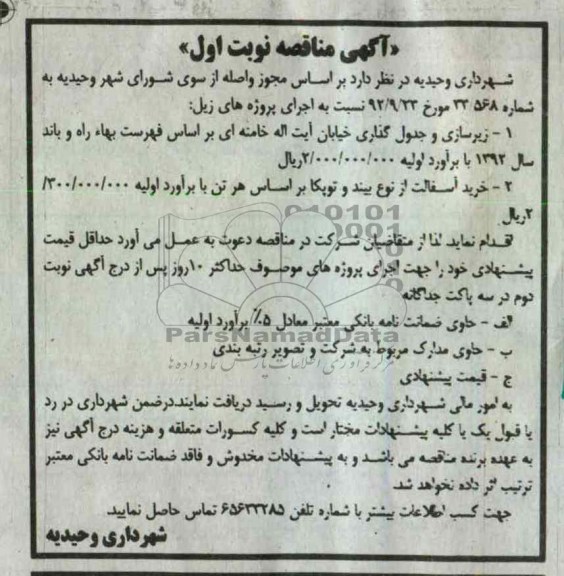 «آگهی مناقصه نوبت اول»
شهرداری وحیدیه در نظر دارد بر اساس مجوز واصله از سوی شورای شهر وحیدیه به
شماره ۳۳ ۵۶۸ مورخ ۹۲/۹/۲۳ نسبت به اجرای پروژه های زیل:
۱ - زیرسازی و جدول گذاری خیابان آیت اله خامنه ای بر اساس فهرست بهاء راه و باند
سال ۱۳۹۲ با برآورد اولیه ۲/۰۰۰/۰۰۰/۰۰۰ریال
۲ - خرید آسفالت از نوع بیند و توپکا بر اساس هر تن با برآورد اولیه ۳۰۰/۰۰۰/۰۰۰/
۲ریال
اقدام نماید لذا از متقاضیان شرکت در مناقصه دعوت به عمل می آورد حداقل قیمت
پیشنهادی خود را جهت اجرای پروژه های موصوف حداکثر ۱۰روز پس از درج آگهی نوبت
دوم در سه پاکت جداگانه
الف - حاوی ضمانت نامه بانکی معتبر معادل ۵٪ برآورد اولیه
ParsNamadData
ب - حاوی مدارک مربوط به شرکت و تصویر رتبه بندی
ج - قیمت پیشنهادی
به امور مالی شهرداری وحیدیه تحویل و رسید دریافت نمایند.درضمن شهرداری در رد
یا قبول یک یا کلیه پیشنهادات مختار است و کلیه کسورات متعلقه و هزینه درج آگهی نیز
به عهده برنده مناقصه می باشد و به پیشنهادات مخدوش و فاقد ضمانت نامه بانکی معتبر
ترتیب اثر داده نخواهد شد.
جهت کسب اطلاعات بیشتر با شماره تلفن ۶۵۶۳۳۲۸۵ تماس حاصل نمایید.
شهرداری وحیدیه